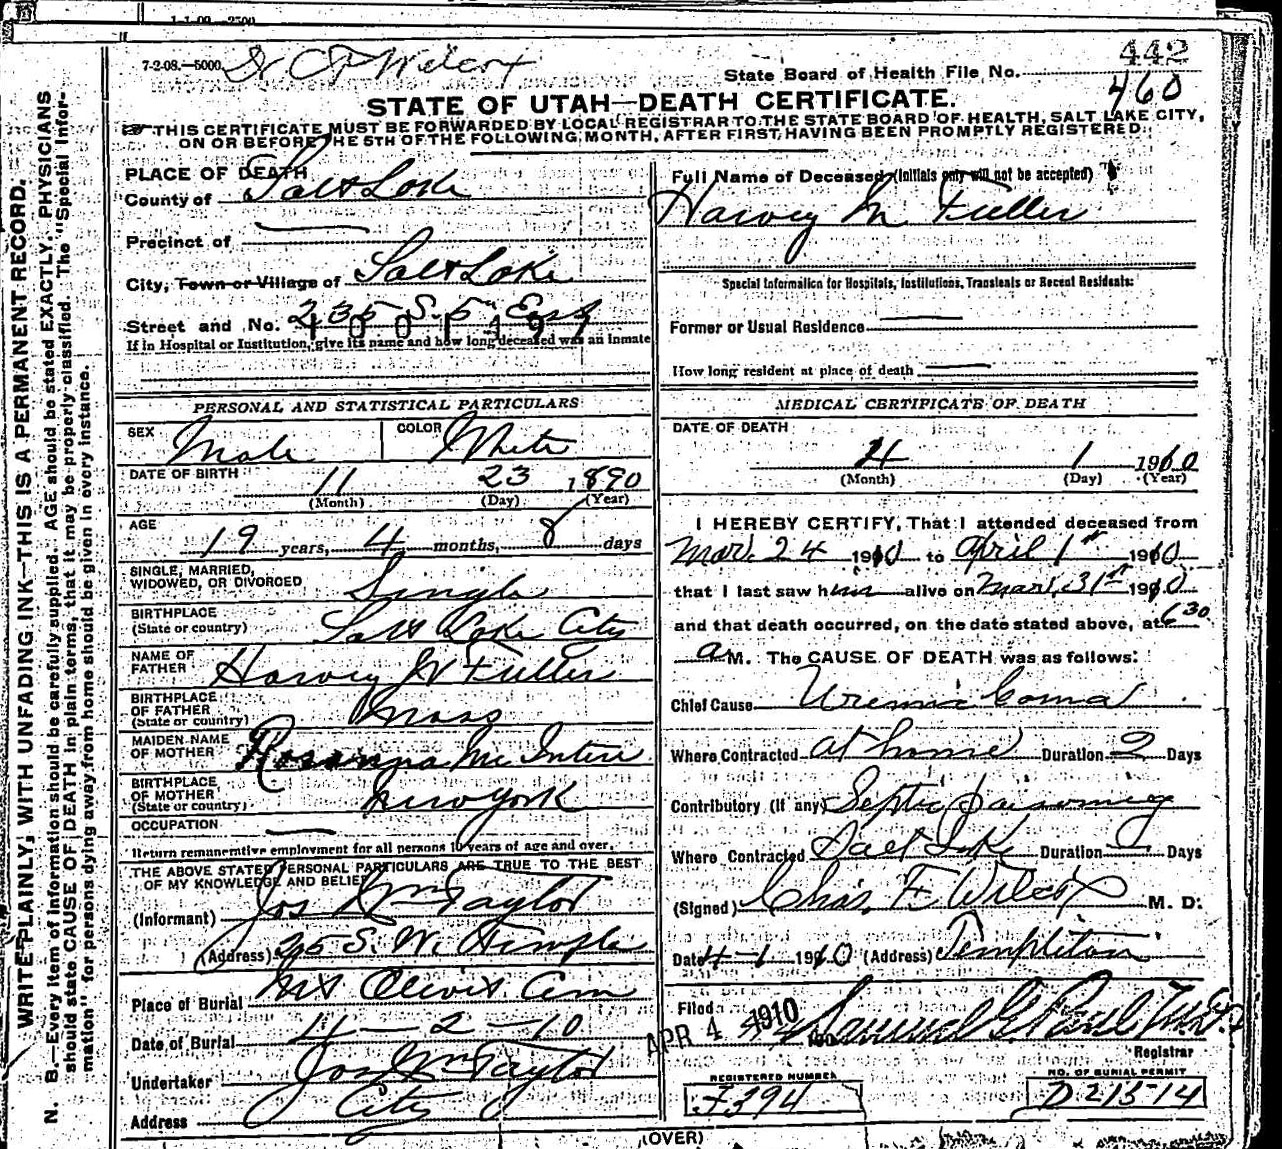 1-1-09—2500
7-2-08.—5000.
442
State Board of Health File No.
460
STATE OF UTAH—DEATH CERTIFICATE.
THIS CERTIFICATE MUST BE FORWARDED BY LOCAL REGISTRAR TO THE STATE BOARD OF HEALTH, SALT LAKE CITY,
ON OR BEFORE THE 5TH OF THE FOLLOWING MONTH, AFTER FIRST HAVING BEEN PROMPTLY REGISTERED.
WRITE PLAINLY, WITH UNFADING INK—THIS IS A PERMANENT RECORD.
N. B.—Every item of information should be carefully supplied. AGE should be stated EXACTLY. PHYSICIANS
should state CAUSE OF DEATH in plain terms, that it may be properly classified. The "Special Infor-
mation" for persons dying away from home should be given in every instance.
PLACE OF DEATH
County of Salt Lake
Precinct of
City, Town or Village of Salt Lake
Street and No. 235 S. 5" East
If in Hospital or Institution, give its name and how long deceased was an inmate
PERSONAL AND STATISTICAL PARTICULARS
SEX Male COLOR White
DATE OF BIRTH 11 23 1890
(Month) (Day) (Year)
AGE
19 years, 4 months, 8 days
SINGLE, MARRIED,
WIDOWED, OR DIVORCED Single
BIRTHPLACE
(State or country) Salt Lake City
NAME OF
FATHER Harvey W Fuller
BIRTHPLACE
OF FATHER
(State or country) Mass
MAIDEN NAME
OF MOTHER Rosanna Mc Intire
BIRTHPLACE
OF MOTHER
(State or country) New York
OCCUPATION
Return remunerative employment for all persons 10 years of age and over.
THE ABOVE STATED PERSONAL PARTICULARS ARE TRUE TO THE BEST
OF MY KNOWLEDGE AND BELIEF
(Informant) Jos Wm Taylor
(Address) 25 S. W. Temple
Place of Burial Mt Olivet Cem
Date of Burial 4—2—10
Undertaker Jos Wm Taylor
Address City
Full Name of Deceased (Initials only will not be accepted)
Harvey M Fuller
Special Information for Hospitals, Institutions, Transients or Recent Residents:
Former or Usual Residence
How long resident at place of death
MEDICAL CERTIFICATE OF DEATH
DATE OF DEATH
4 1 1910
(Month) (Day) (Year)
I HEREBY CERTIFY, That I attended deceased from
Mar. 24 1910 to April 1st 1910
that I last saw him alive on Mar. 31st 1910
and that death occurred, on the date stated above, at 6 30
a M. The CAUSE OF DEATH was as follows:
Chief Cause Uremic Coma
Where Contracted at home Duration 2 Days
Contributory (if any) Septic poisoning
Where Contracted Salt Lake Duration Days
(Signed) Chas. F Wilcox M. D.
Date 4-1 1910 (Address) Templeton
Filed APR 4 1910
Registrar
REGISTERED NUMBER
NO. OF BURIAL PERMIT
F394
D 21514
(OVER)